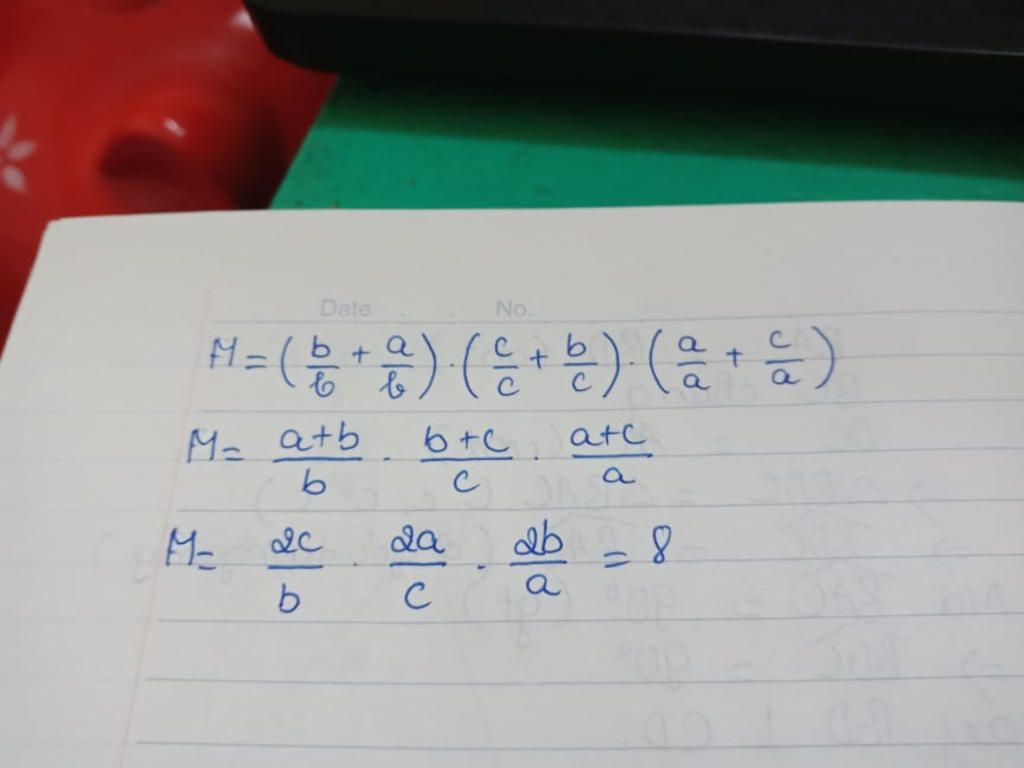 Date . . No.
M = (b/b + a/b) · (c/c + b/c) · (a/a + c/a)
M = a+b/b · b+c/c · a+c/a
M = 2c/b · 2a/c · 2b/a = 8